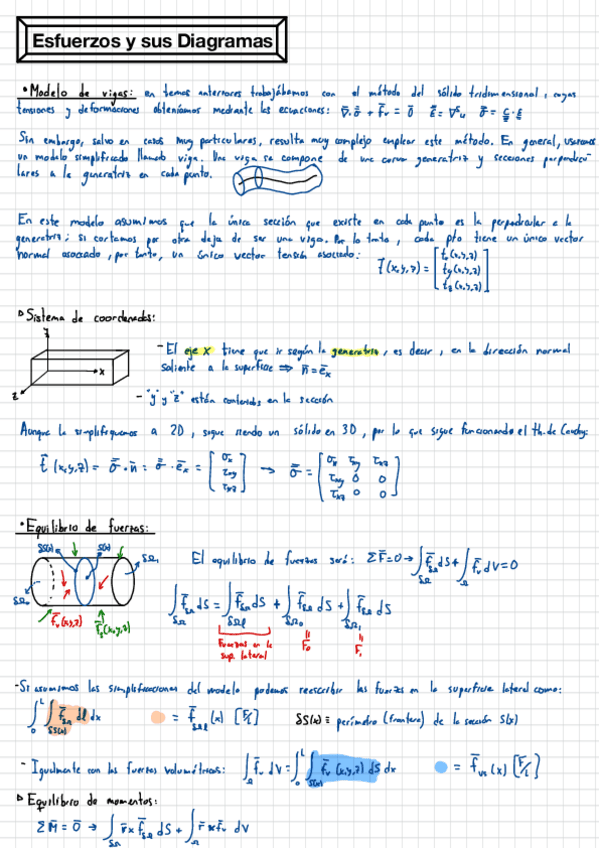 Esfuerzos y sus Diagramas
• Modelo de vigas: en temas anteriores trabajábamos con el método del sólido tridimensional, cuyas
tensiones y deformaciones obteníamos mediante las ecuaciones: ∇·σ̿ + f̄ᵥ = 0̄ ε̿ = ∇ˢu σ̿ = C · ε̿
Sin embargo, salvo en casos muy particulares, resulta muy complejo emplear este método. En general, usaremos
un modelo simplificado llamado viga. Una viga se compone de una curva generatriz y secciones perpendicu-
lares a la generatriz en cada punto.
En este modelo asumimos que la única sección que existe en cada punto es la perpendicular a la
generatriz; si cortamos por otra deja de ser una viga. Por lo tanto, cada pto tiene un único vector
normal asociado, por tanto, un único vector tensión asociado:
t̄(x,y,z) = [tx(x,y,z) ty(x,y,z) tz(x,y,z)]
▷ Sistema de coordenadas:
y
x
z
- El eje X tiene que ir según la generatriz, es decir, en la dirección normal
saliente a la superficie ⇒ n̄ = ēx
- "y" y "z" están contenidos en la sección
Aunque lo simplifiquemos a 2D, sigue siendo un sólido en 3D, por lo que sigue funcionando el th. de Cauchy:
t̄(x,y,z) = σ̿ · n̄ = σ̿ · ēx = [σx τxy τxz] → σ̿ = [σx τxy τxz; τxy 0 0; τxz 0 0]
• Equilibrio de fuerzas:
δS(x) S(x) δΩ₁
δΩ₀
f̄ᵥ(x,y,z)
f̄s(x,y,z)
El equilibrio de fuerzas será: ΣF̄=0 → ∫δΩ f̄δΩ dS + ∫Ω f̄ᵥ dV = 0
∫δΩ f̄δΩ dS = ∫δΩℓ f̄δΩ dS + ∫δΩ₀ f̄δΩ dS + ∫δΩ₁ f̄δΩ dS
Fuerzas en la
sup. lateral
F̄₀
F̄₁
- Si asumimos las simplificaciones del modelo podemos reescribir las fuerzas en la superficie lateral como:
∫₀ᴸ ∫δS(x) f̄δΩ dl dx = f̄δΩℓ(x) [F/L] δS(x) ≡ perímetro (frontera) de la sección S(x)
- Igualmente con las fuerzas volumétricas: ∫Ω f̄ᵥ dV = ∫₀ᴸ ∫S(x) f̄ᵥ(x,y,z) dS dx = f̄ᵥₛ(x) [F/L]
▷ Equilibrio de momentos:
ΣM̄ = 0̄ → ∫δΩ r̄ × f̄δΩ dS + ∫Ω r̄ × f̄ᵥ dV